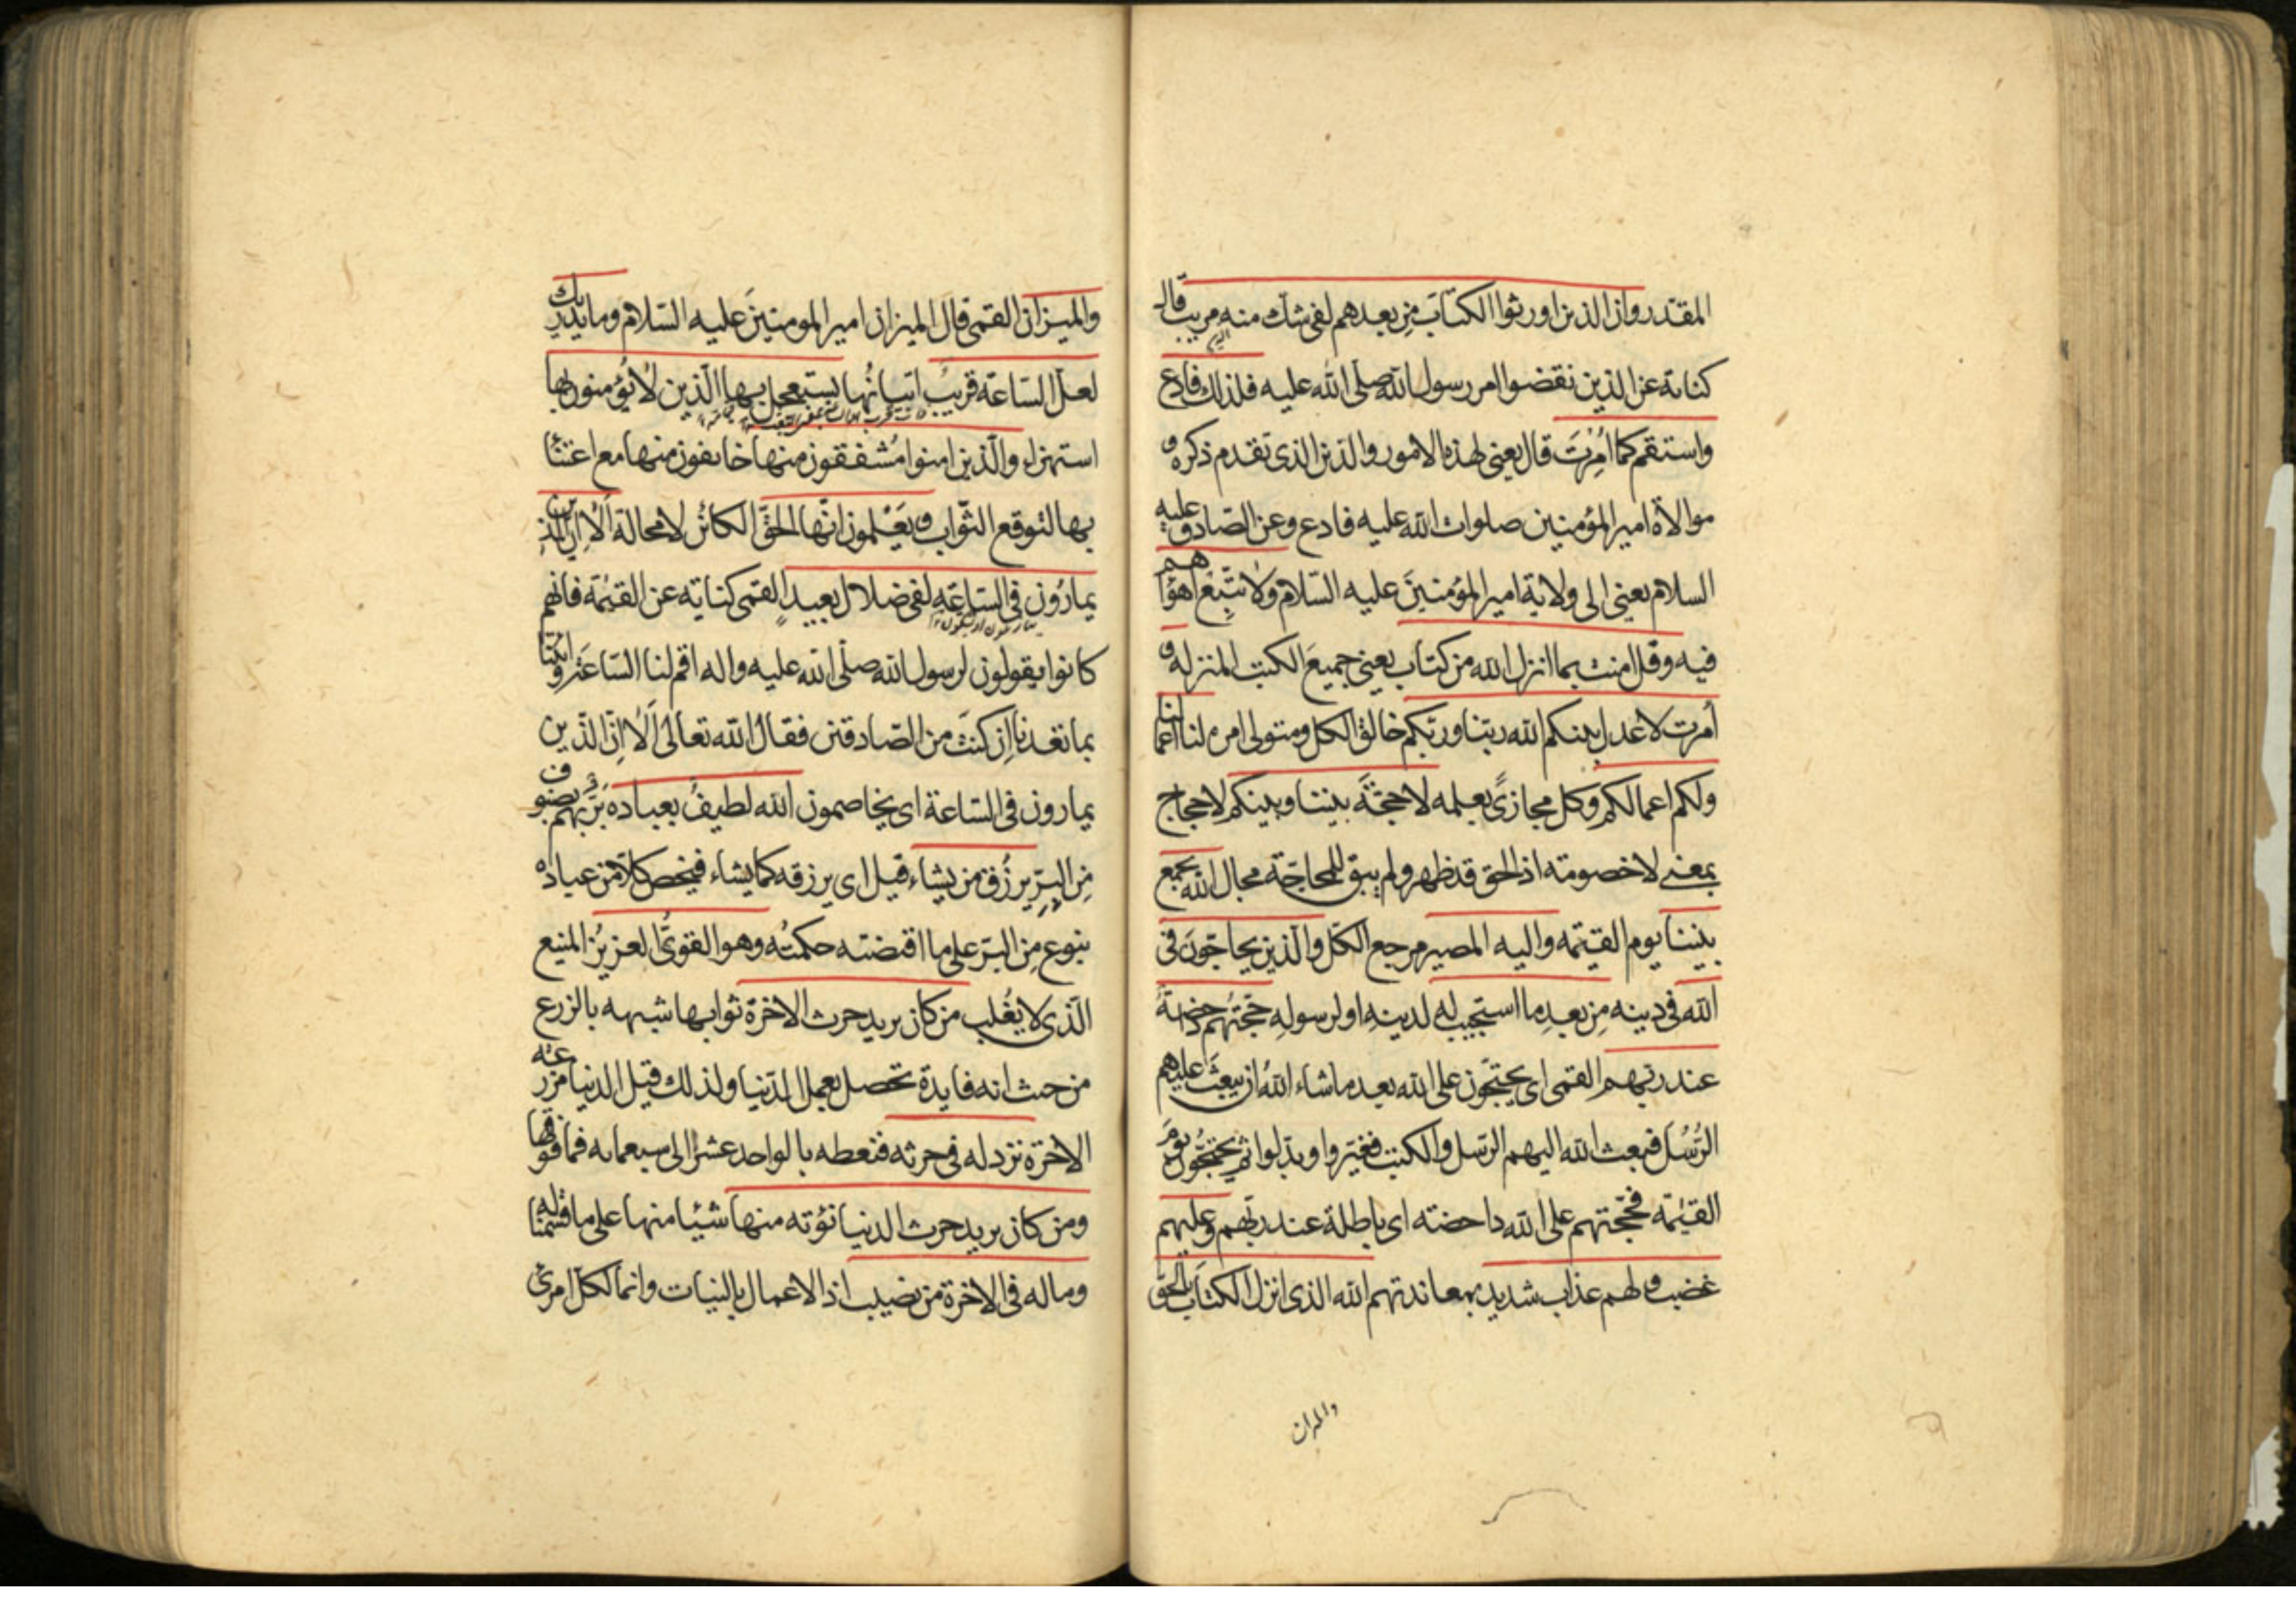 المقتدر وان الذين اورثوا الكتاب مِن بعدهم لفى شك منه مريب قال
كناية عن الذين نقضوا امر رسول الله صلى الله عليه فلذلك فادع
واستقم كما اُمِرْتَ قال يعنى لهذه الامور والدين الذى تقدم ذكره و
موالاة امير المؤمنين صلوات الله عليه فادع وعن الصادق عليه
السلام يعنى الى ولاية امير المؤمنينَ عليه السّلام ولا تتَّبِعْ اهوٰاءهم
فيه وقل امنت بما انزل الله من كتاب يعنى جميعَ الكتب المنزله و
اُمرت لاعدل بينكم الله ربّنا وربّكم خالق الكل ومتولى امره لنا اعمالنا
ولكم اعمالكم وكل مجازىً بعلمه لا حجّةَ بيننا وبينكم لا حجاج
بمعنى لا خصومته اذ الحق قد ظهر ولم يبق للمحاجّة مجال الله يجمع
بيننا يوم القيٰمه واليه المصير مرجع الكلّ والّذين يحاجّونَ فى
الله فى دينه مِن بعدِ ما استجيب له لدينهِ او لرسولهِ حجّتهُم داحضةٌ
عند ربّهم القمى اى يحتجّون على الله بعد ما شاء اللهُ ان يبعثَ عليهم
الرُّسُلَ فبعث الله اليهم الرّسل والكتب فغيّروا وبدّلوا ثمّ يحتجّون يومَ
القيٰمة فحجّتهم على الله داحضته اى باطلة عند ربّهم وعليهم
غضب ولهم عذاب شديد بمعاندتهم الله الذى انزل الكتابَ بالحق
والمیزان
والميزان القمى قال الميزان امير المومنينَ عليه السّلام وما يدريك
لعلّ السّاعة قريبٌ اتيانُها يستعجل بها الّذين لا يؤمنون بها
استهزاء والّذين امنوا مُشفقون منها خائفون منها مع اعتنا
بها لتوقع الثّواب ويَعْلمون انّها الحقّ الكائنُ لا محالة اَلا اِنّ الّذين
يمارُون فى السّاعَةِ لفى ضلال بعيد القمى كنايته عن القيٰمة فانهم
كانوا يقولون لرسول الله صلّى الله عليه واله اقم لنا السّاعَة وائتنا
بما تعدنا اِن كنتَ من الصّادقين فقالَ الله تعالى اَلا اِنّ الّذين
يمارون فى السّاعة اى يخاصمون الله لطيفٌ بعباده بَرٌّ بهم بصنوف
مِن البِرّ يرزُق من يشاء قيل اى يرزقه كما يشاء فيخص كلّا من عباده
بنوع مِن البّر على ما اقتضته حكمتُه وهو القوىُّ العزيزُ المنيع
الّذى لا يُغْلب من كان يريد حرث الاخرة ثوابها شبهه بالزرع
من حيث انه فايدة تحصل بعمل الدّنيا ولذلك قيل الدنيا مزرعة
الاخرة نزد له فى حرثه فنعطه بالواحد عشرًا الى سبعمايه فما فوقها
ومن كان يريد حرث الدنيا نؤته منها شيئا منها على ما قسمنا له
وماله فى الاخرة من نصيب اذ الاعمال بالنيات وانما لكلّ امرئ